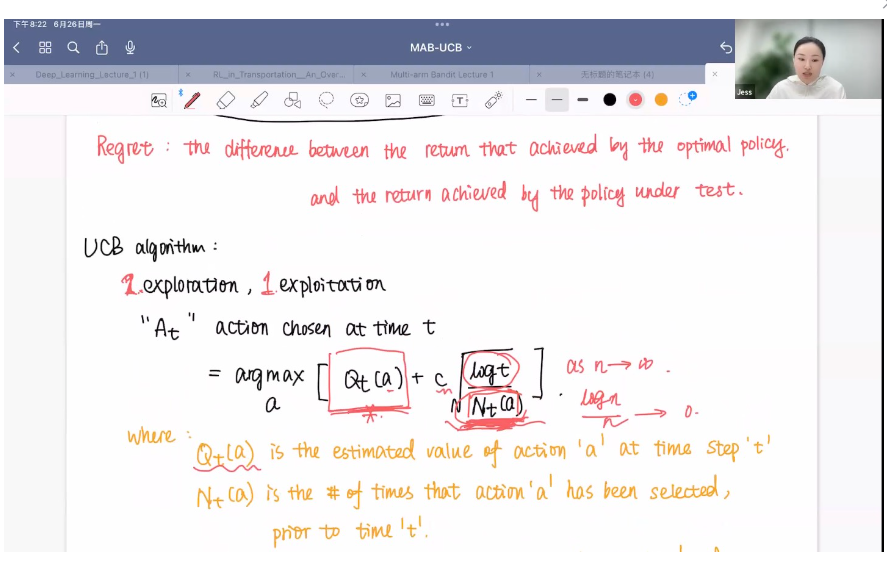 下午8:22 6月26日周一
MAB-UCB
Deep_Learning_Lecture_1 (1)
RL_in_Transportation__An_Over...
Multi-arm Bandit Lecture 1
无标题的笔记本 (4)
Jess
Regret : the difference between the return that achieved by the optimal policy.
and the return achieved by the policy under test.
UCB algorithm :
2.exploration , 1.exploitation
"At" action chosen at time t
= argmax a [ Qt(a) + c √(log t / Nt(a)) ] .
as n→∞ .
log n / n → 0.
where :
Qt(a) is the estimated value of action 'a' at time step 't'
Nt(a) is the # of times that action 'a' has been selected,
prior to time 't'.